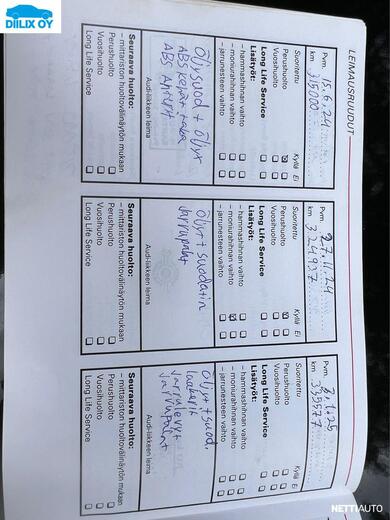 DIILIX OY
LEIMAUSRUUDUT
Pvm. 15.6.24
km 315000
Suoritettu Kyllä Ei
Perushuolto
Vuosihuolto
Long Life Service
Lisätyöt:
– hammashihnan vaihto
– moniurahihnan vaihto
– jarrunesteen vaihto
Öljysuod + öljyt
ABS
ABS Anturit
Audi-liikkeen leima
Seuraava huolto:
– mittariston huoltovälinäytön mukaan
Perushuolto
Vuosihuolto
Long Life Service
Pvm. 27.11.24
km 324937
Suoritettu Kyllä Ei
Perushuolto
Vuosihuolto
Long Life Service
Lisätyöt:
– hammashihnan vaihto
– moniurahihnan vaihto
– jarrunesteen vaihto
Öljyt + suodatin
Jarrupalat
Audi-liikkeen leima
Seuraava huolto:
– mittariston huoltovälinäytön mukaan
Perushuolto
Vuosihuolto
Long Life Service
Pvm.
km
Suoritettu Kyllä Ei
Perushuolto
Vuosihuolto
Long Life Service
Lisätyöt:
– hammashihnan vaihto
– moniurahihnan vaihto
– jarrunesteen vaihto
Öljyt + suod.
laakerit
Jarrulevyt
Jarrupalat
Audi-liikkeen leima
Seuraava huolto:
– mittariston huoltovälinäytön mukaan
Perushuolto
Vuosihuolto
Long Life Service
NETTIAUTO